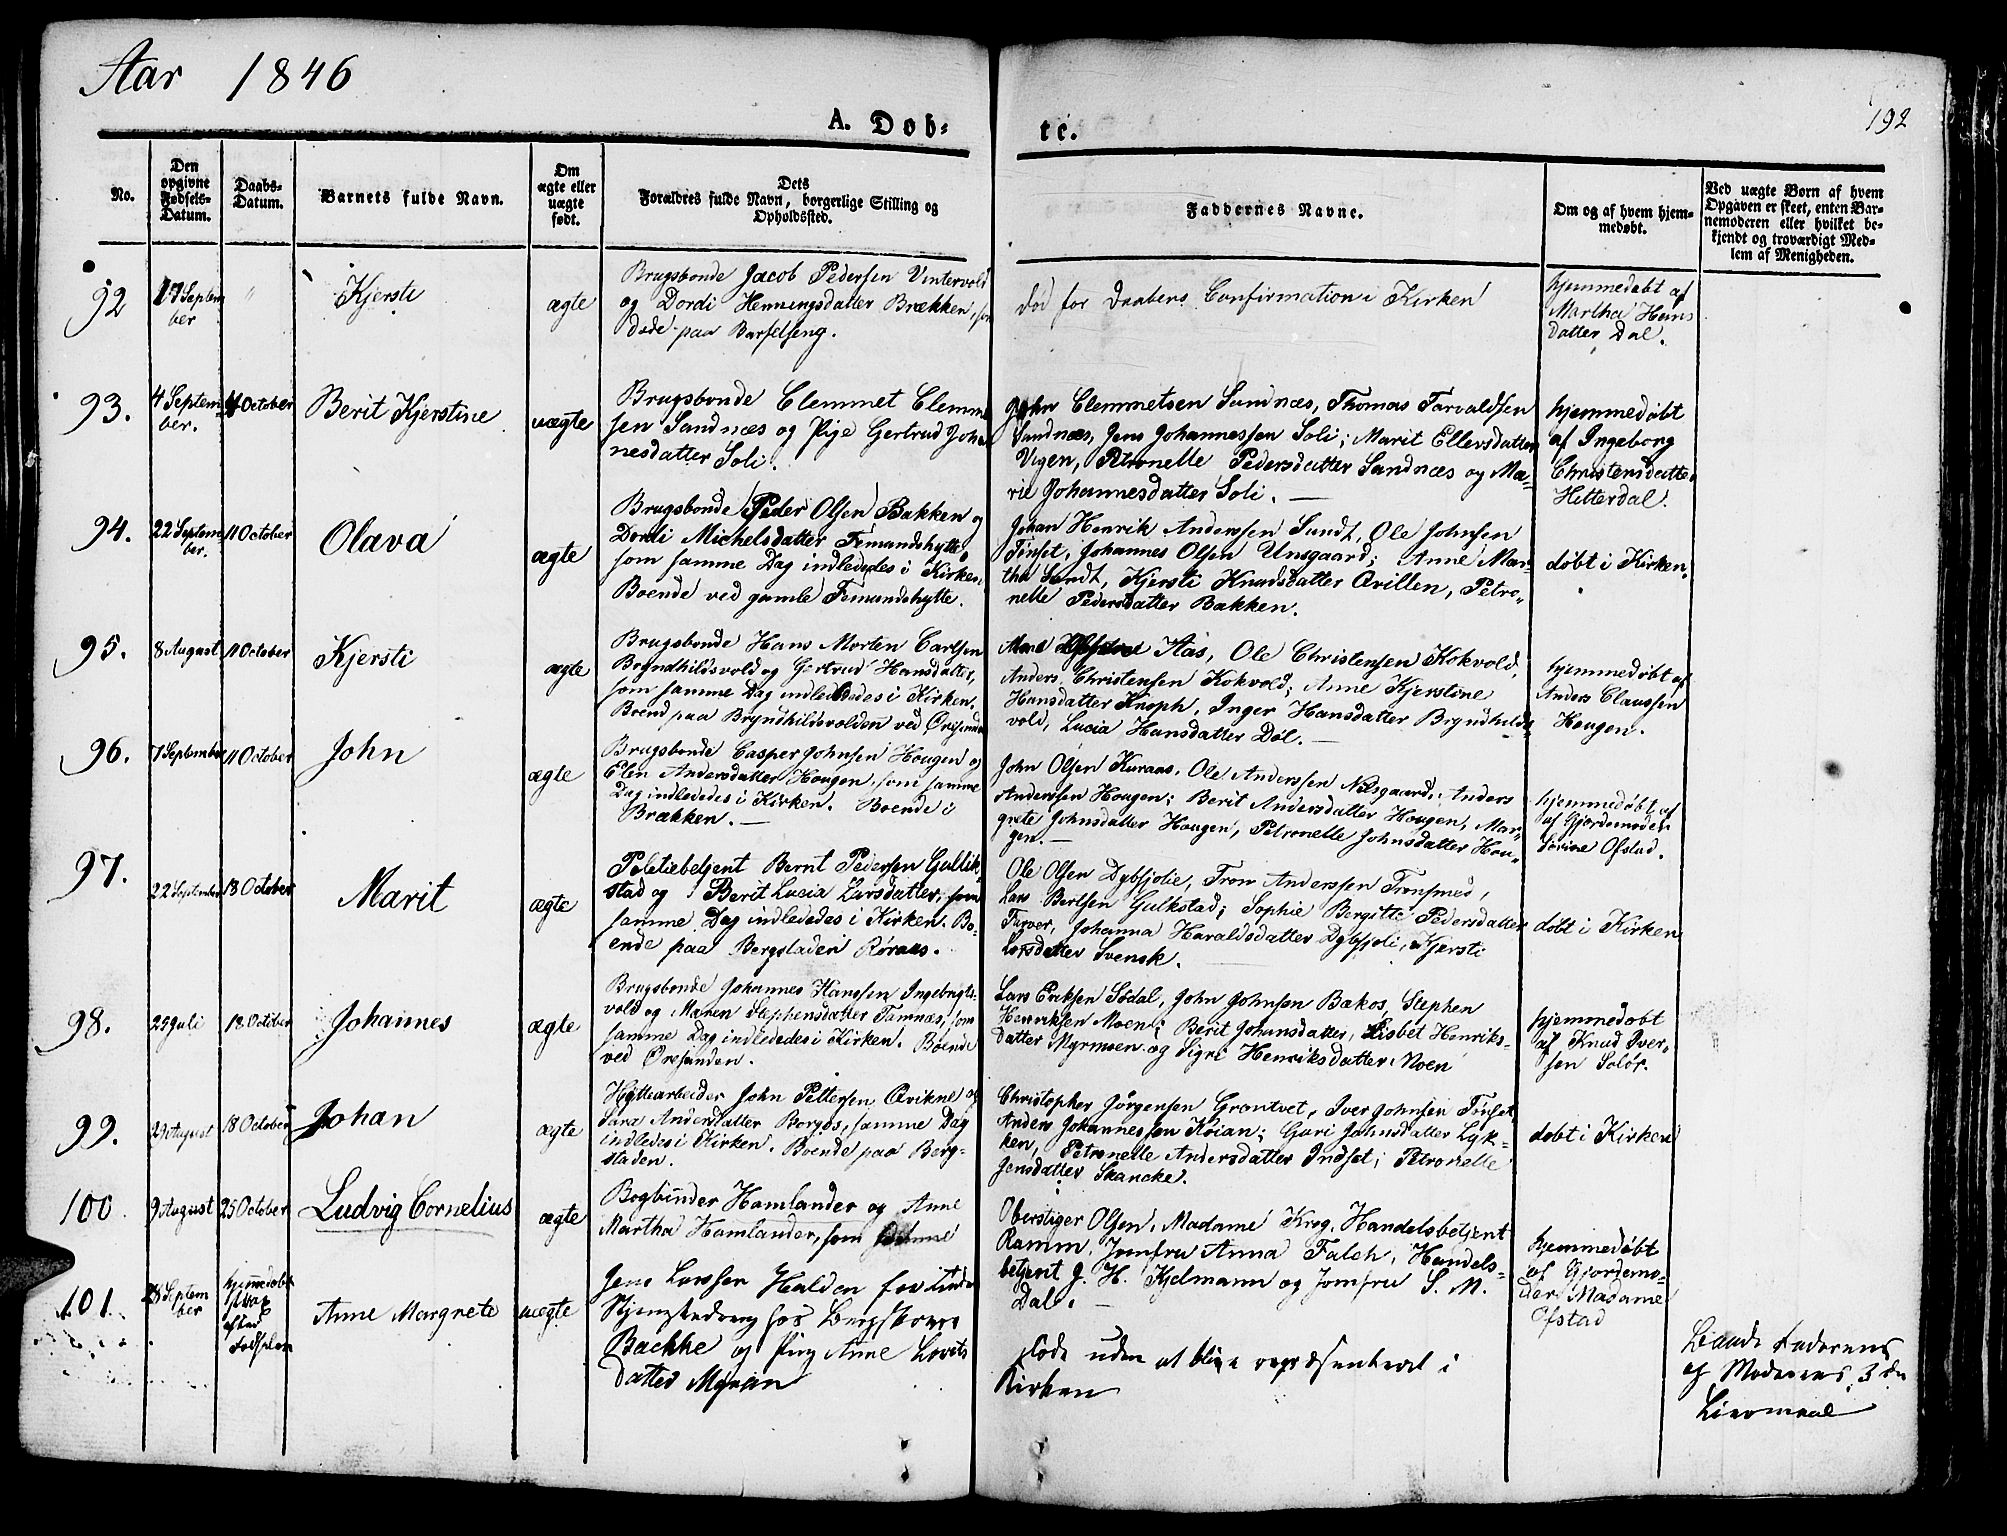 Aar 1846
192
A. Døb-
te.
No.
Den opgivne Fødsels-Datum.
Daabs-Datum.
Barnets fulde Navn.
Om ægte eller uægte født.
Dets Forældres fulde Navn, borgerlige Stilling og Opholdssted.
Faddernes Navne.
Om og af hvem hjem-
medøbt.
Ved uægte Børn af hvem
Opgaven er skeet, enten Bar-
nemoderen eller hvilket be-
kjendt og troværdigt Med-
lem af Menigheden.
92
17 Septem
ber
"
Kjersti
ægte
Brugsbonde Jacob Pedersen Vintervold
og Dordi Henningsdatter Brækken, som
døde paa Barselseng.
død før Daabens Confirmation i Kirken
hjemmedøbt af
Martha Hans
datter Dal.
93.
4 Septem-
ber.
11 October
Berit Kjerstine
uægte
Brugsbonde Clemmet Clemmet
sen Sandnæs og Pige Gertrud Johan
nesdatter Soli.
John Clemmetsen Sundnæs, Thomas Tarvaldsen
Sandnæs, Jens Johannessen Soli; Marit Ellevsdatter
Vigen, Petronelle Pedersdatter Sandnæs og Ma-
rie Johannesdatter Soli. —
hjemmedøbt
af Ingeborg
Christensdatter
Hitterdal.
94.
22 Septem
ber.
11 October
Olava
ægte
Brugsbonde Peder Olsen Bakken og
Dordi Michelsdatter Femundshytte,
som samme Dag indlededes i Kirken.
Boende ved gamle Femundshytte.
Johan Henrik Anderssen Sundt, Ole Johnsen
Tinset, Johannes Olsen Unsgaard; Anne Mar-
tha Sundt, Kjersti Knudsdatter Qvillen, Petro-
nelle Pedersdatter Bakken.
døbt i Kirken.
95.
8 August
11 October
Kjersti
ægte
Brugsbonde Hans Morten Carlsen
Bryndhilsvold og Gertrud Hansdatter,
som samme Dag indlededes i Kirken.
Boend paa Bryndhildsvolden ved Øresunde
Aas, Ole Christensen Kokvold,
Anders Christensen Kokvold; Anne Kjerstine
Hansdatter Knoph, Inger Hansdatter Bryndhilds
vold, Lucia Hansdatter Døl. —
hjemmedøbt af
Anders Claussen
Hougen.
96.
7 September
11 October
John
ægte
Brugsbonde Casper Johnsen Hougen og
Elen Andersdatter Hougen, som samme
Dag indlededes i Kirken. Boende i
Brækken. —
John Olsen Kuraas, Ole Anderssen Nilsgaard, Anders
Anderssen Hougen; Berit Andersdatter Hougen, Mar-
grete Johnsdatter Hougen, Petronelle Johnsdatter Hou-
gen. —
hjemmedøbt af
af Gjordemoder
Sovine Ofstad.
97.
22 September
18 October
Marit
ægte
Poletiebetjent Bernt Pedersen Gullik
stad og Berit Lucia Larsdatter, som
samme Dag indlededes i Kirken. Bo-
ende paa Bergstaden Røraas.
Ole Olsen Dybsjolie, Tron Anderssen Tronsmed,
Lars Berthsen Gulkstad; Sophie Bergitte Pedersdatter
Farver, Johanna Haraldsdatter Dybsjoli, Kjersti
Larsdatter Svensk.
døbt i Kirken
98.
25 Juli
18 October
Johannes
ægte
Brugsbonde Johannes Hanssen Ingebrigts-
vold og Maren Stephensdatter Tamnæs, som
samme Dag indlededes i Kirken. Boende
ved Øresunden.
Lars Eriksen Sødal, John Johnsen Bakos, Stephen
Henriksen Moen; Berit Johansdatter, Lisbet Henriks-
datter Myrmoen og Sigri Henriksdatter Moen
hjemmedøbt
af Knud Iver-
sen Solør.
99.
29 August
18 October
Johan
ægte
Hyttearbeider John Pettersen Qvikne og
Sara Andersdatter Borgos, samme Dag
indledes i Kirken. Boende paa Berg-
staden.
Christopher Jørgensen Grantvet, Iver Johnsen Tinset,
Anders Johannessen Koian; Guri Johnsdatter Lyk-
ken, Petronelle Andersdatter Indset; Petronelle
Jensdatter Skancke.
døbt i Kirken
100
9 August
25 October
Ludvig Cornelius
ægte
Bogbinder Hamlander og Anne
Martha Hamlander, som
Oberstiger Olsen, Madame Krog, Handelsbetjent
Ramm, Jomfru Anna Falch, Handels-
betjent J. H. Kjelmann og Jomfru S. M.
Dal. —
hjemmedøbt
af Gjordemo-
der Madame
Ofstad
101.
28 Septem
ber
hjemmedøbt
strax
efter
Fødselen
Anne Margrete
uægte
Jens Larssen Halden for Tiden
Bergskriver
Backke og Pige Anne Lovits
datter Myran
døde uden at blive repræsenteret i
Kirken
Baade Faderens
og Moderens 3 die
Leiermaal